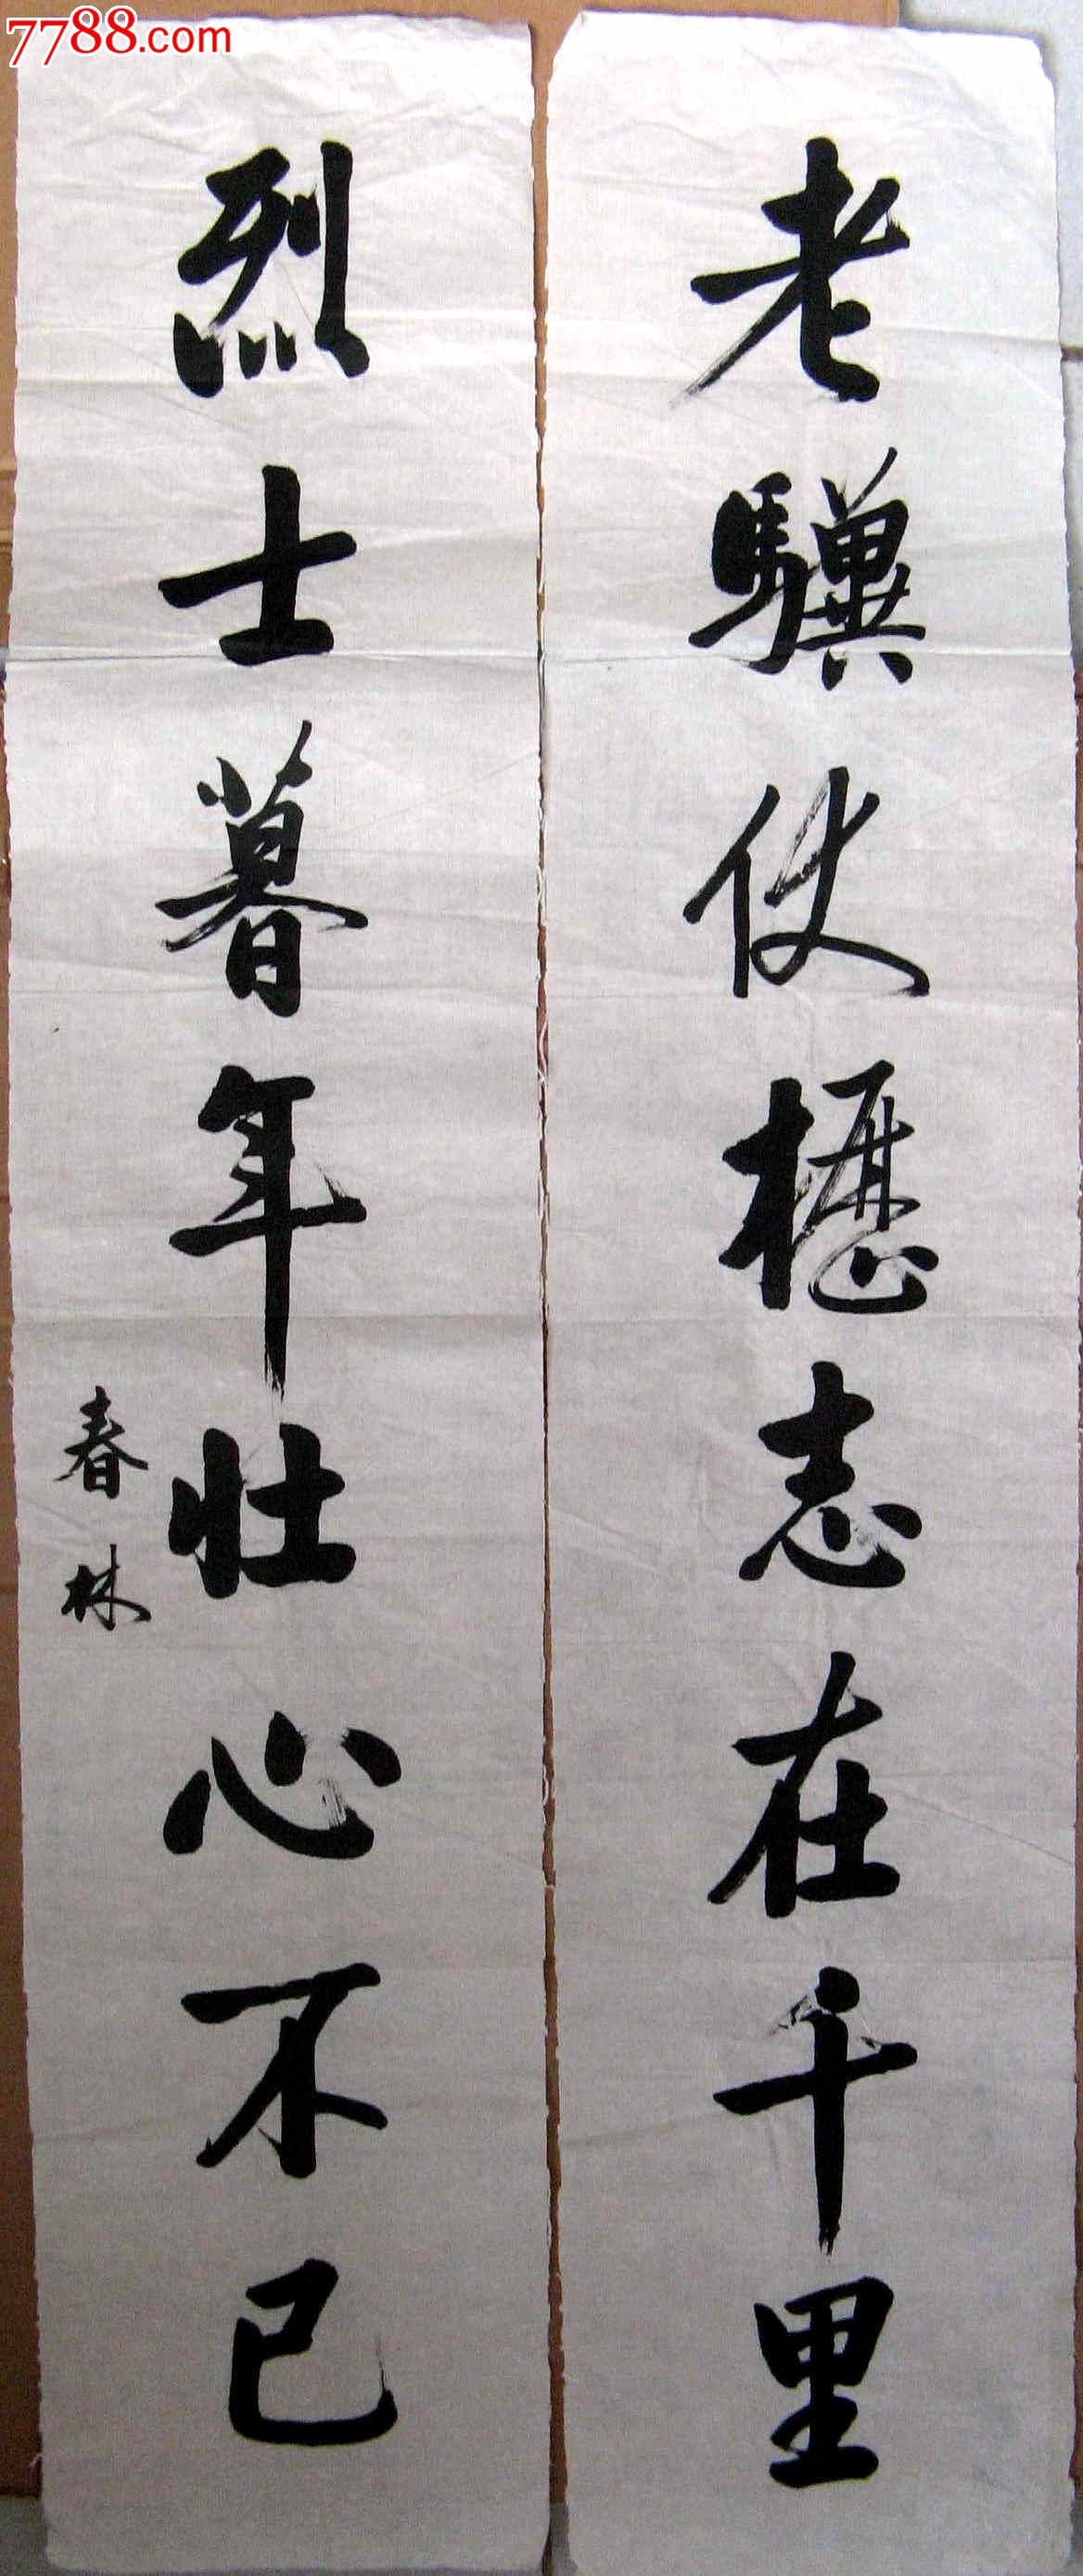 7788.com
老驥伏櫪志在千里
烈士暮年壮心不已
春林